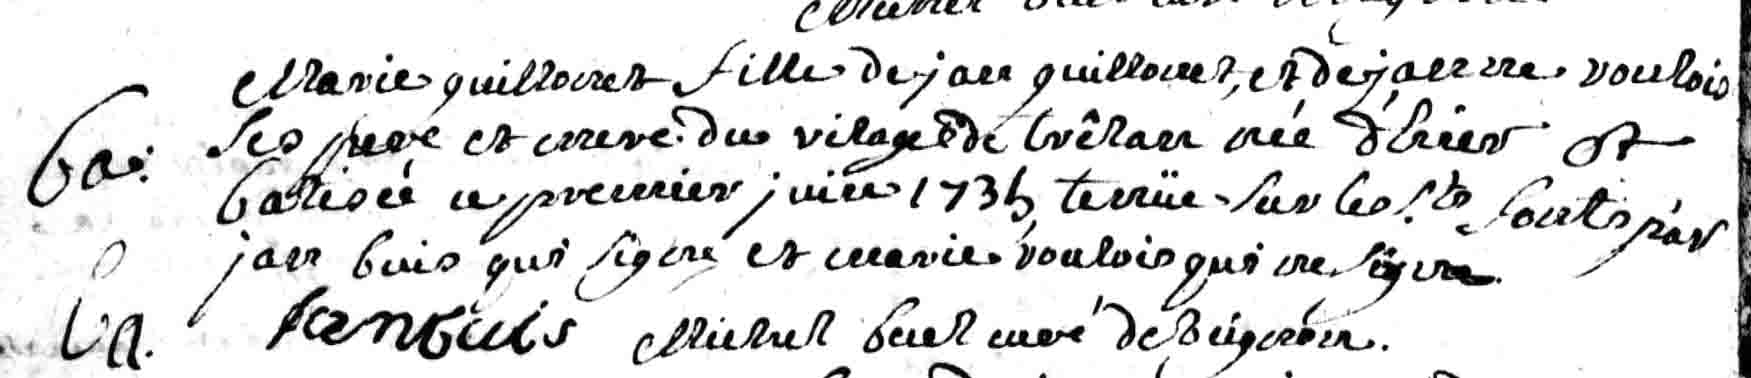 ba. Marie quillouet fille de jan quillouet, et de janne voulois
ses pere et mere du vilage de trêlan née d'hier et
batisée ce premier juin 1735 tenüe sur les sts fonts par
jan buis qui signe et marie voulois qui ne signe.
ba. jan buis Michel buel curé de